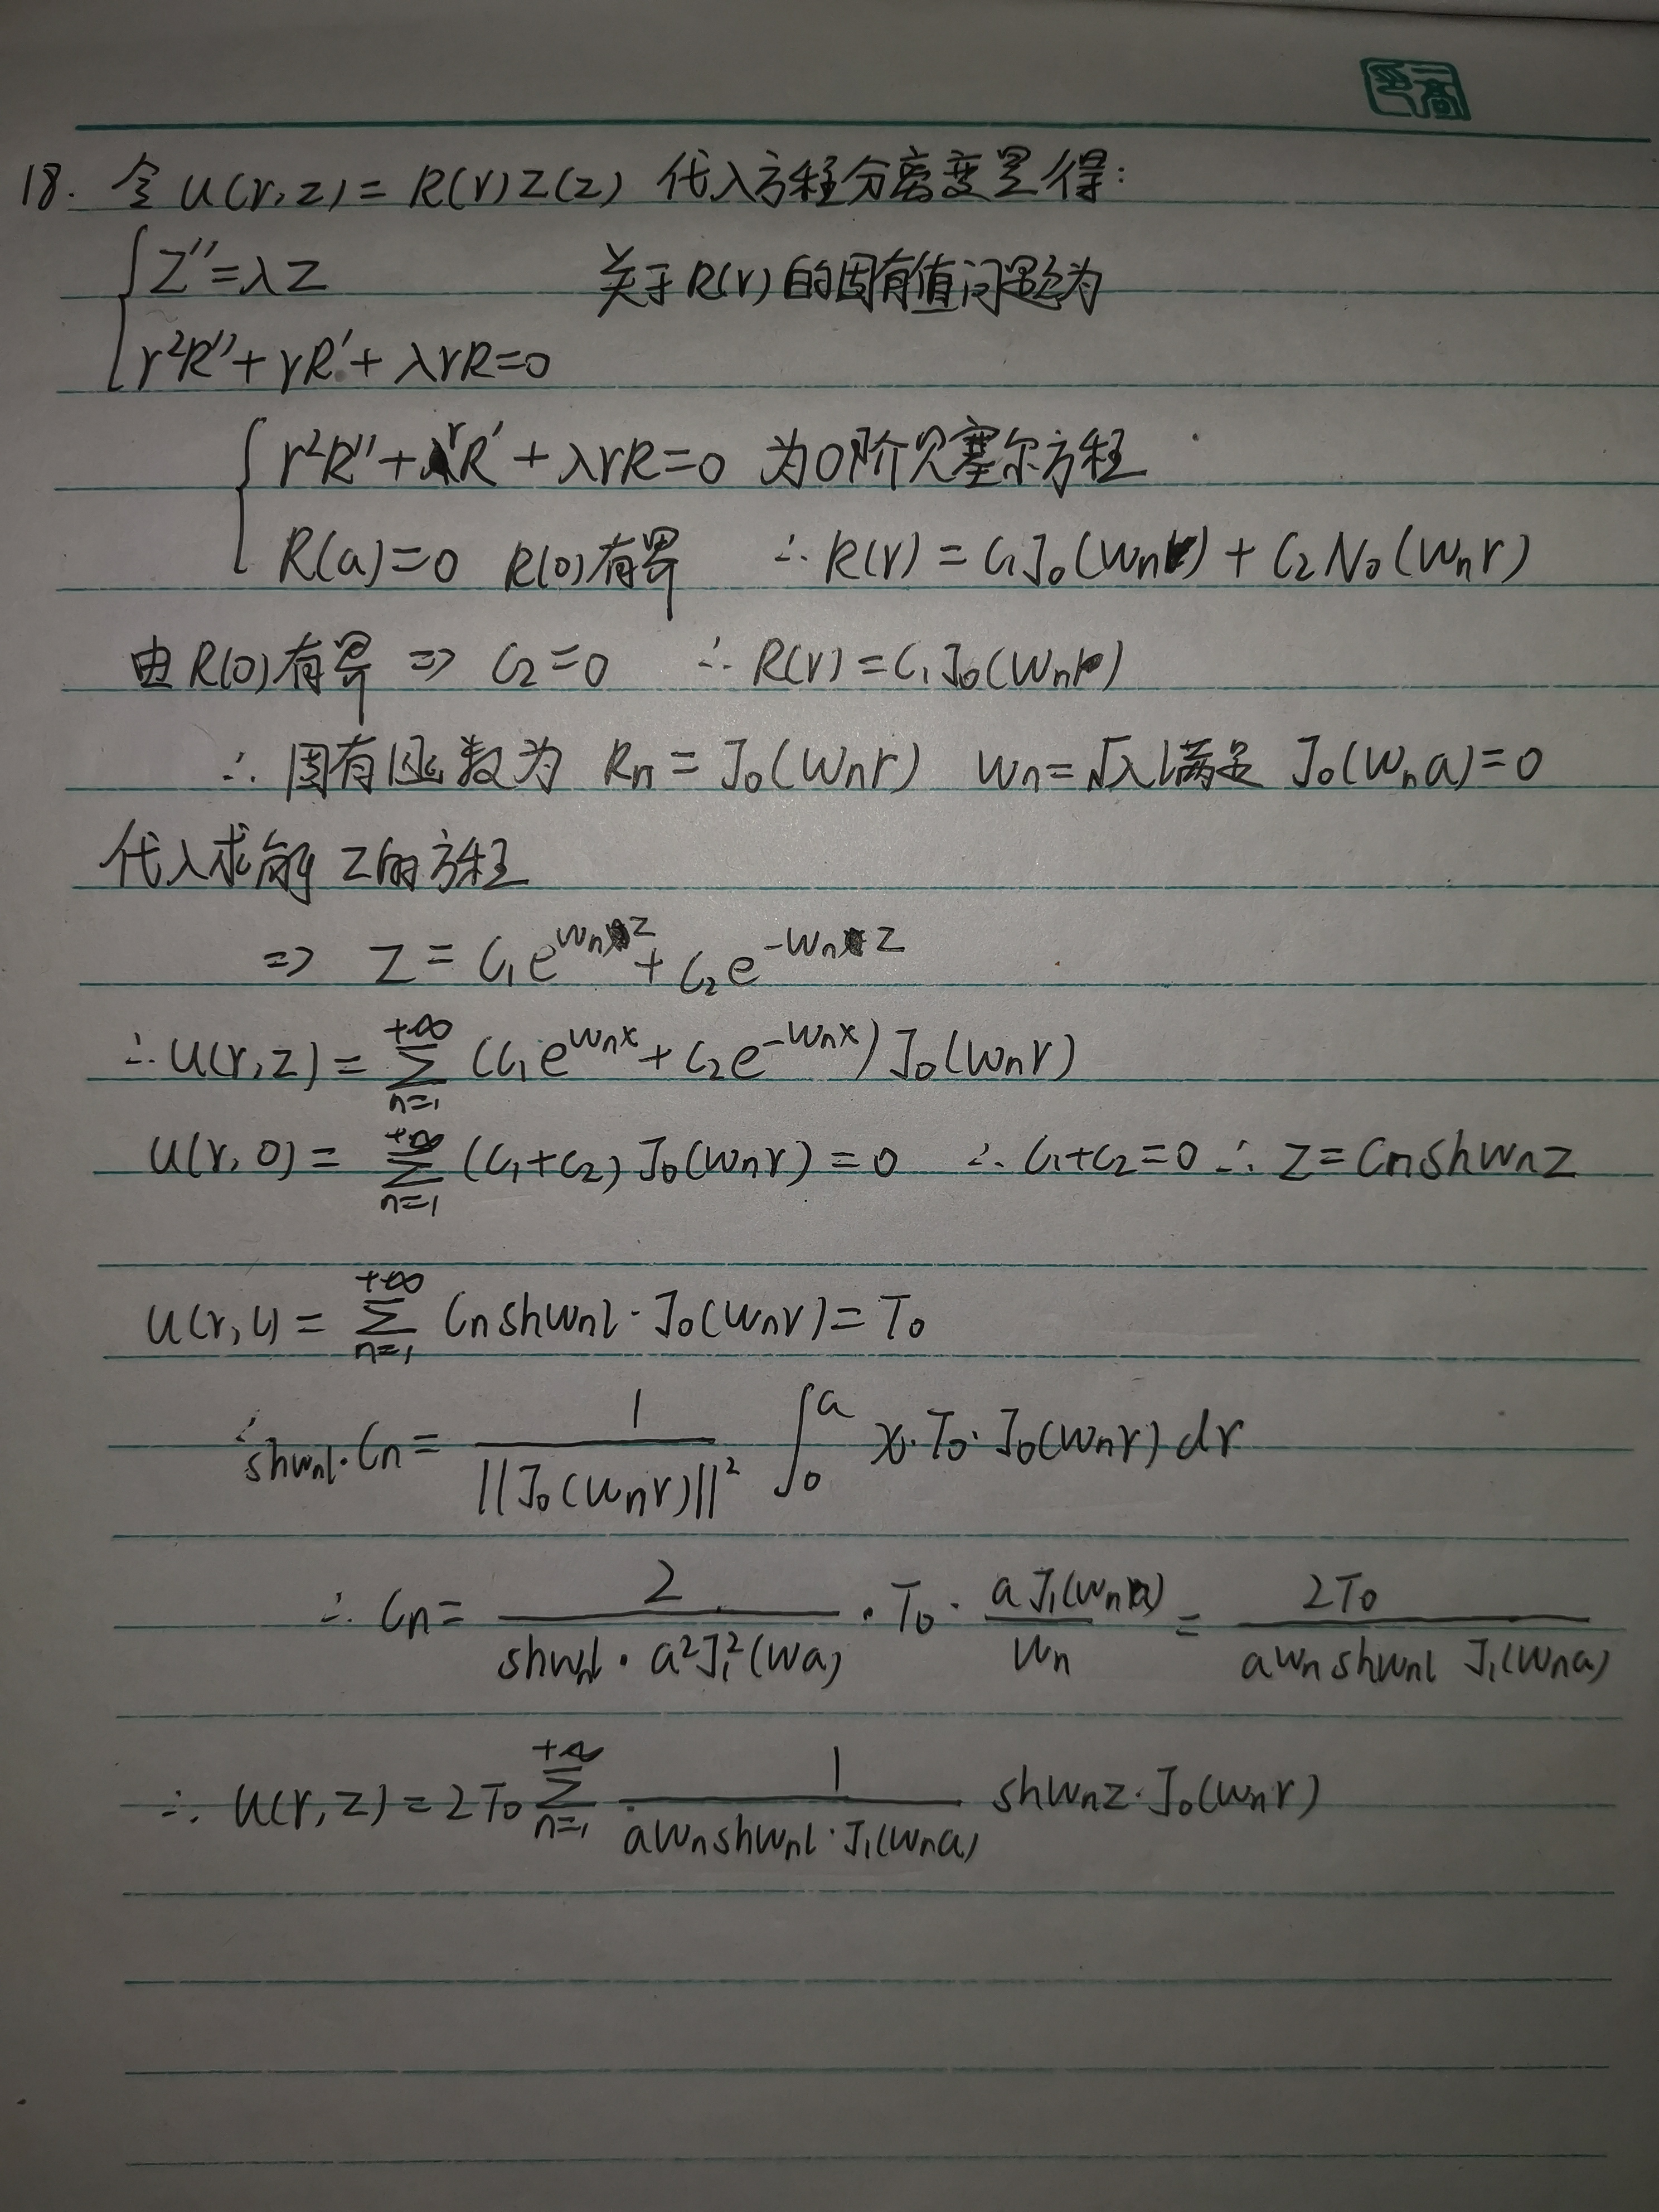 18. 令 u(r,z)=R(r)Z(z) 代入方程分离变量得:
{ Z''=λZ 关于R(r)的固有值问题为
r²R''+rR'+λrR=0
{ r²R''+rR'+λrR=0 为0阶贝塞尔方程
R(a)=0 R(0)有界 ∴R(r)=C₁J₀(wₙr)+C₂N₀(wₙr)
由R(0)有界 ⇒ C₂=0 ∴R(r)=C₁J₀(wₙr)
∴固有函数为 Rₙ=J₀(wₙr) wₙ=√λ 满足 J₀(wₙa)=0
代入求解Z的方程
⇒ Z=C₁e^{wₙz}+C₂e^{-wₙz}
∴u(r,z)=∑_{n=1}^{+∞}(C₁e^{wₙx}+C₂e^{-wₙx})J₀(wₙr)
u(r,0)=∑_{n=1}^{+∞}(C₁+C₂)J₀(wₙr)=0 ∴C₁+C₂=0 ∴Z=Cₙshwₙz
u(r,l)=∑_{n=1}^{+∞}Cₙshwₙl·J₀(wₙr)=T₀
∴shwₙl·Cₙ=\frac{1}{||J₀(wₙr)||²}∫_0^a x·T₀·J₀(wₙr)dr
∴Cₙ=\frac{2}{shwₙl·a²J₁²(wa)}·T₀·\frac{aJ₁(wₙa)}{wₙ}=\frac{2T₀}{awₙshwₙl J₁(wₙa)}
∴u(r,z)=2T₀∑_{n=1}^{+∞}\frac{1}{awₙshwₙl·J₁(wₙa)}shwₙz·J₀(wₙr)